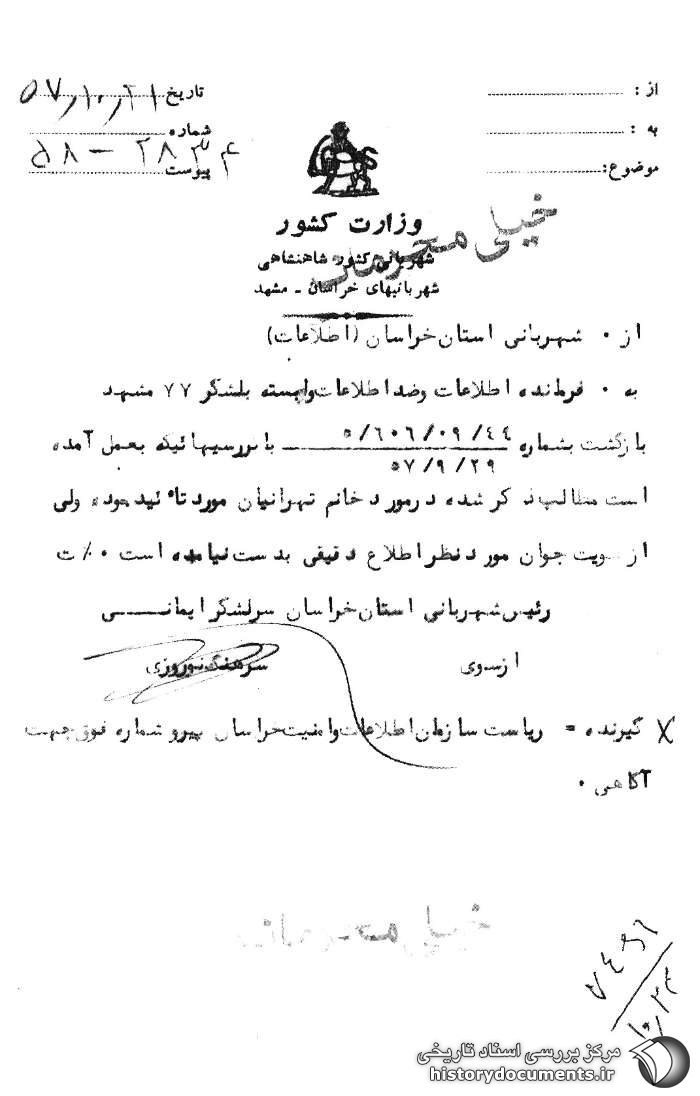 از :
به :
موضوع:
تاریخ ۵۷/۱۰/۲۱
شماره
۲۸۳۴ - ۵۸
پیوست
وزارت کشور
شهربانی کشور شاهنشاهی
شهربانیهای خراسان - مشهد
خیلی محرمانه
از ۰ شهربانی استان خراسان (اطلاعات)
به ۰ فرمانده اطلاعات وضد اطلاعات وابسته بلشگر ۷۷ مشهد
بازگشت بشماره ۵/۶۰۶/۰۹/٤٤ بابررسیهائیکه بعمل آمده
۵۷/۹/۲۹
است مطالب ذکر شده درمورد خانم تهرانیان مورد تائید بوده ولی
از هویت جوان مورد نظر اطلاع دقیقی بدست نیامده است ۰٪ ت
رئیس شهربانی استان خراسان سرلشگر ایمانــــی
ازسوی
سرهنگ نوروزی
گیرنده = ریاست سازمان اطلاعات وامنیت خراسان پیرو شماره فوق جهت
آگاهی ۰
خیلی محرمانه
مرکز بررسی اسناد تاریخی
historydocuments.ir